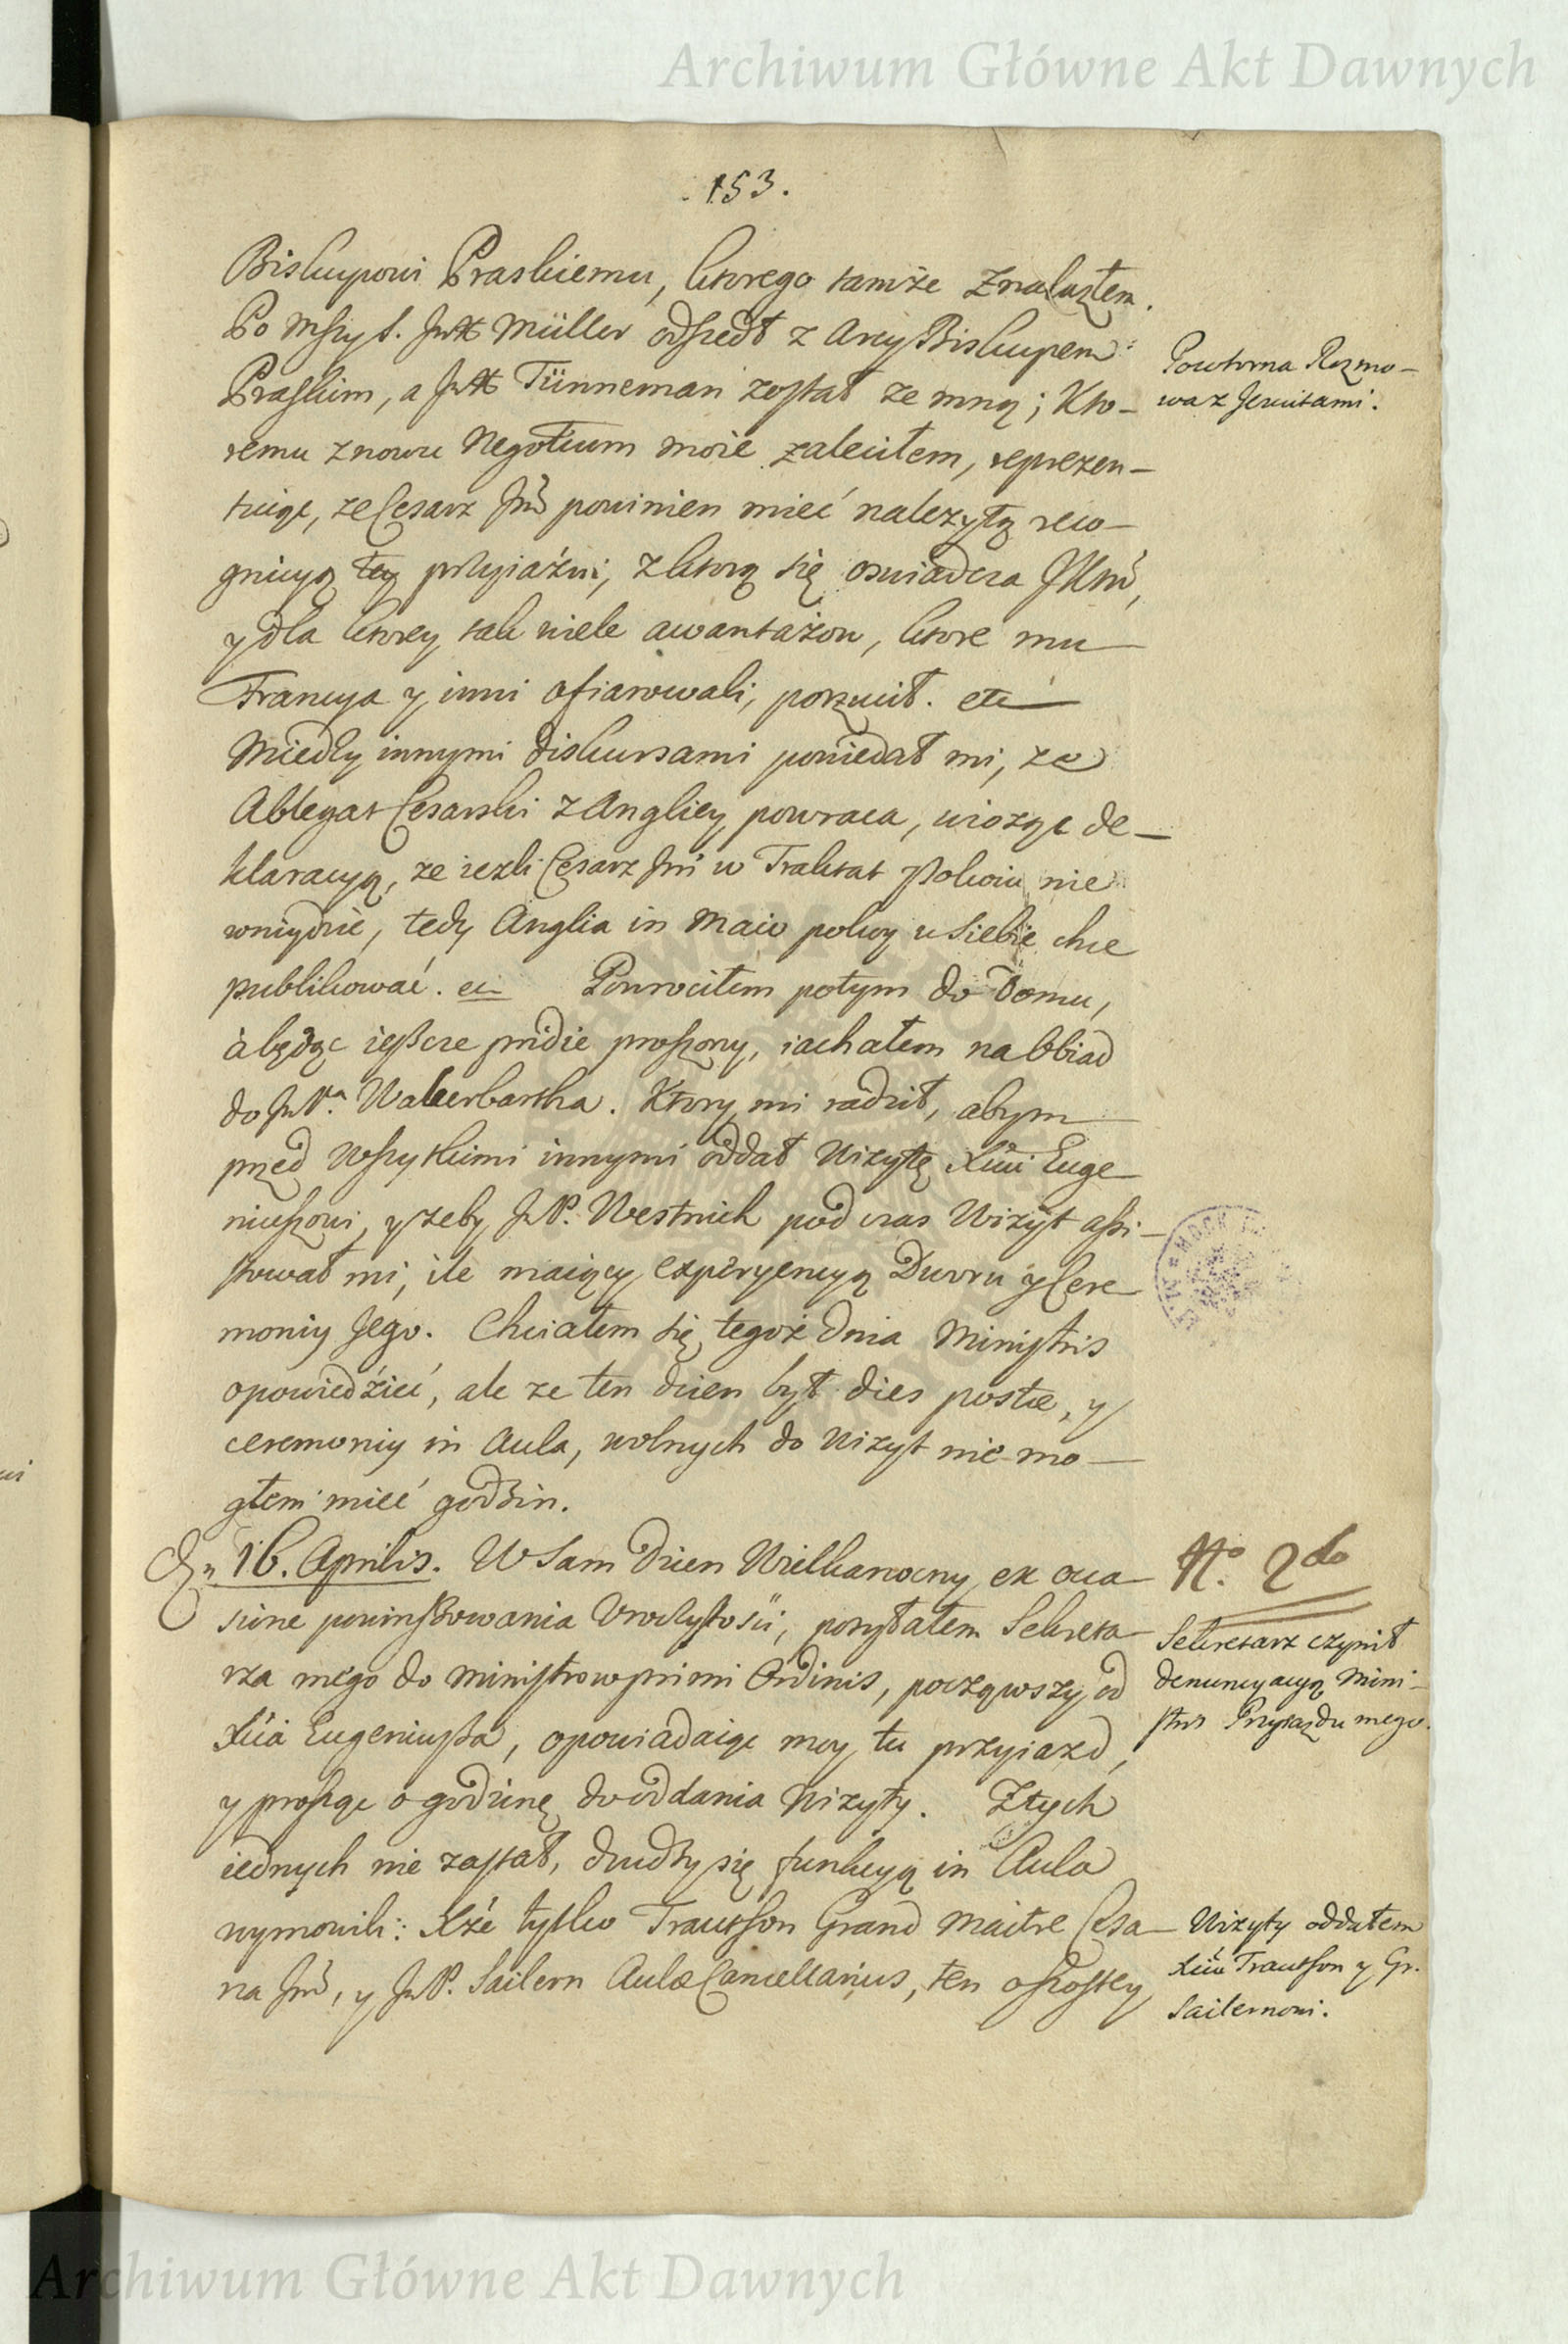 Archiwum Główne Akt Dawnych
. 153 .
Biskupowi Praskiemu, ktorego tamże Znalazłem.
Po Mszy S. Müller odszedł z ArcyBiskupem
Praskim, a Tünneman został ze mną; Kto-
remu znowu Negotium moie zaleciłem, reprezen-
tuiąc, ze Cesarz Jmć powinien mieć nalezytą reco-
gnicyą tey przyiaźni, z ktorą się oswiadcza JKMć,
y dla ktorey tak wiele awantażow, ktore mu
Francya y inni ofiarowali, porzucił. etc
Miedzy innymi diskursami powiedał mi, ze
Ablegat Cesarski z Angliey powraca, wioząc de-
klaracyą, ze iezli Cesarz Jmć w Traktat Pokoiu nie
wniydzie, tedy Anglia in Maio pokoy u siebie chce
publikować. etc Powrociłem potym do Domu,
à będąc ieszcze pridie proszony, iachałem na Obiad
do JmPa. Wakerbartha. Ktory mi radził, abym
przed wszytkimi innymi oddał Wizytę Xciu Euge
niuszowi, y zeby JmP. Westnich pod czas Wizyt assi-
stował mi, ile maiący experyencyą Dworu y Cere
moniy Jego. Chciałem się tegoż dnia Ministris
opowiedźieć, ale ze ten dzien był dies postæ, y
ceremoniy in Aula, wolnych do Wizyt nie mo-
głem mieć godzin.
Dn. 16. Aprilis. W Sam Dzien Wielkanocny, ex occa-
sione powinszowania Uroczystości, posyłałem Sekreta-
rza mego do Ministrow primi Ordinis, począwszy od
Xcia Eugeniusza, opowiadaiąc moy tu przyiazd,
y prosząc o godzinę do oddania Wizyty. Z tych
iednych nie zastał, drudzy się funkcyą in Aula
wymowili: Xże tylko Trautson Grand Maitre Cesa-
rza Jmć, y JmP. Sailern Aulæ Cancellarius, ten oschostey
Powtorna Rozmo-
wa z Jezuitami.
No. 2do
Sekretarz czynił
denuncyacyą Mini-
stris Przyiazdu mego.
Wizyty oddałem
Xciu Trautson y Gr.
Sailernowi.
Archiwum Główne Akt Dawnych